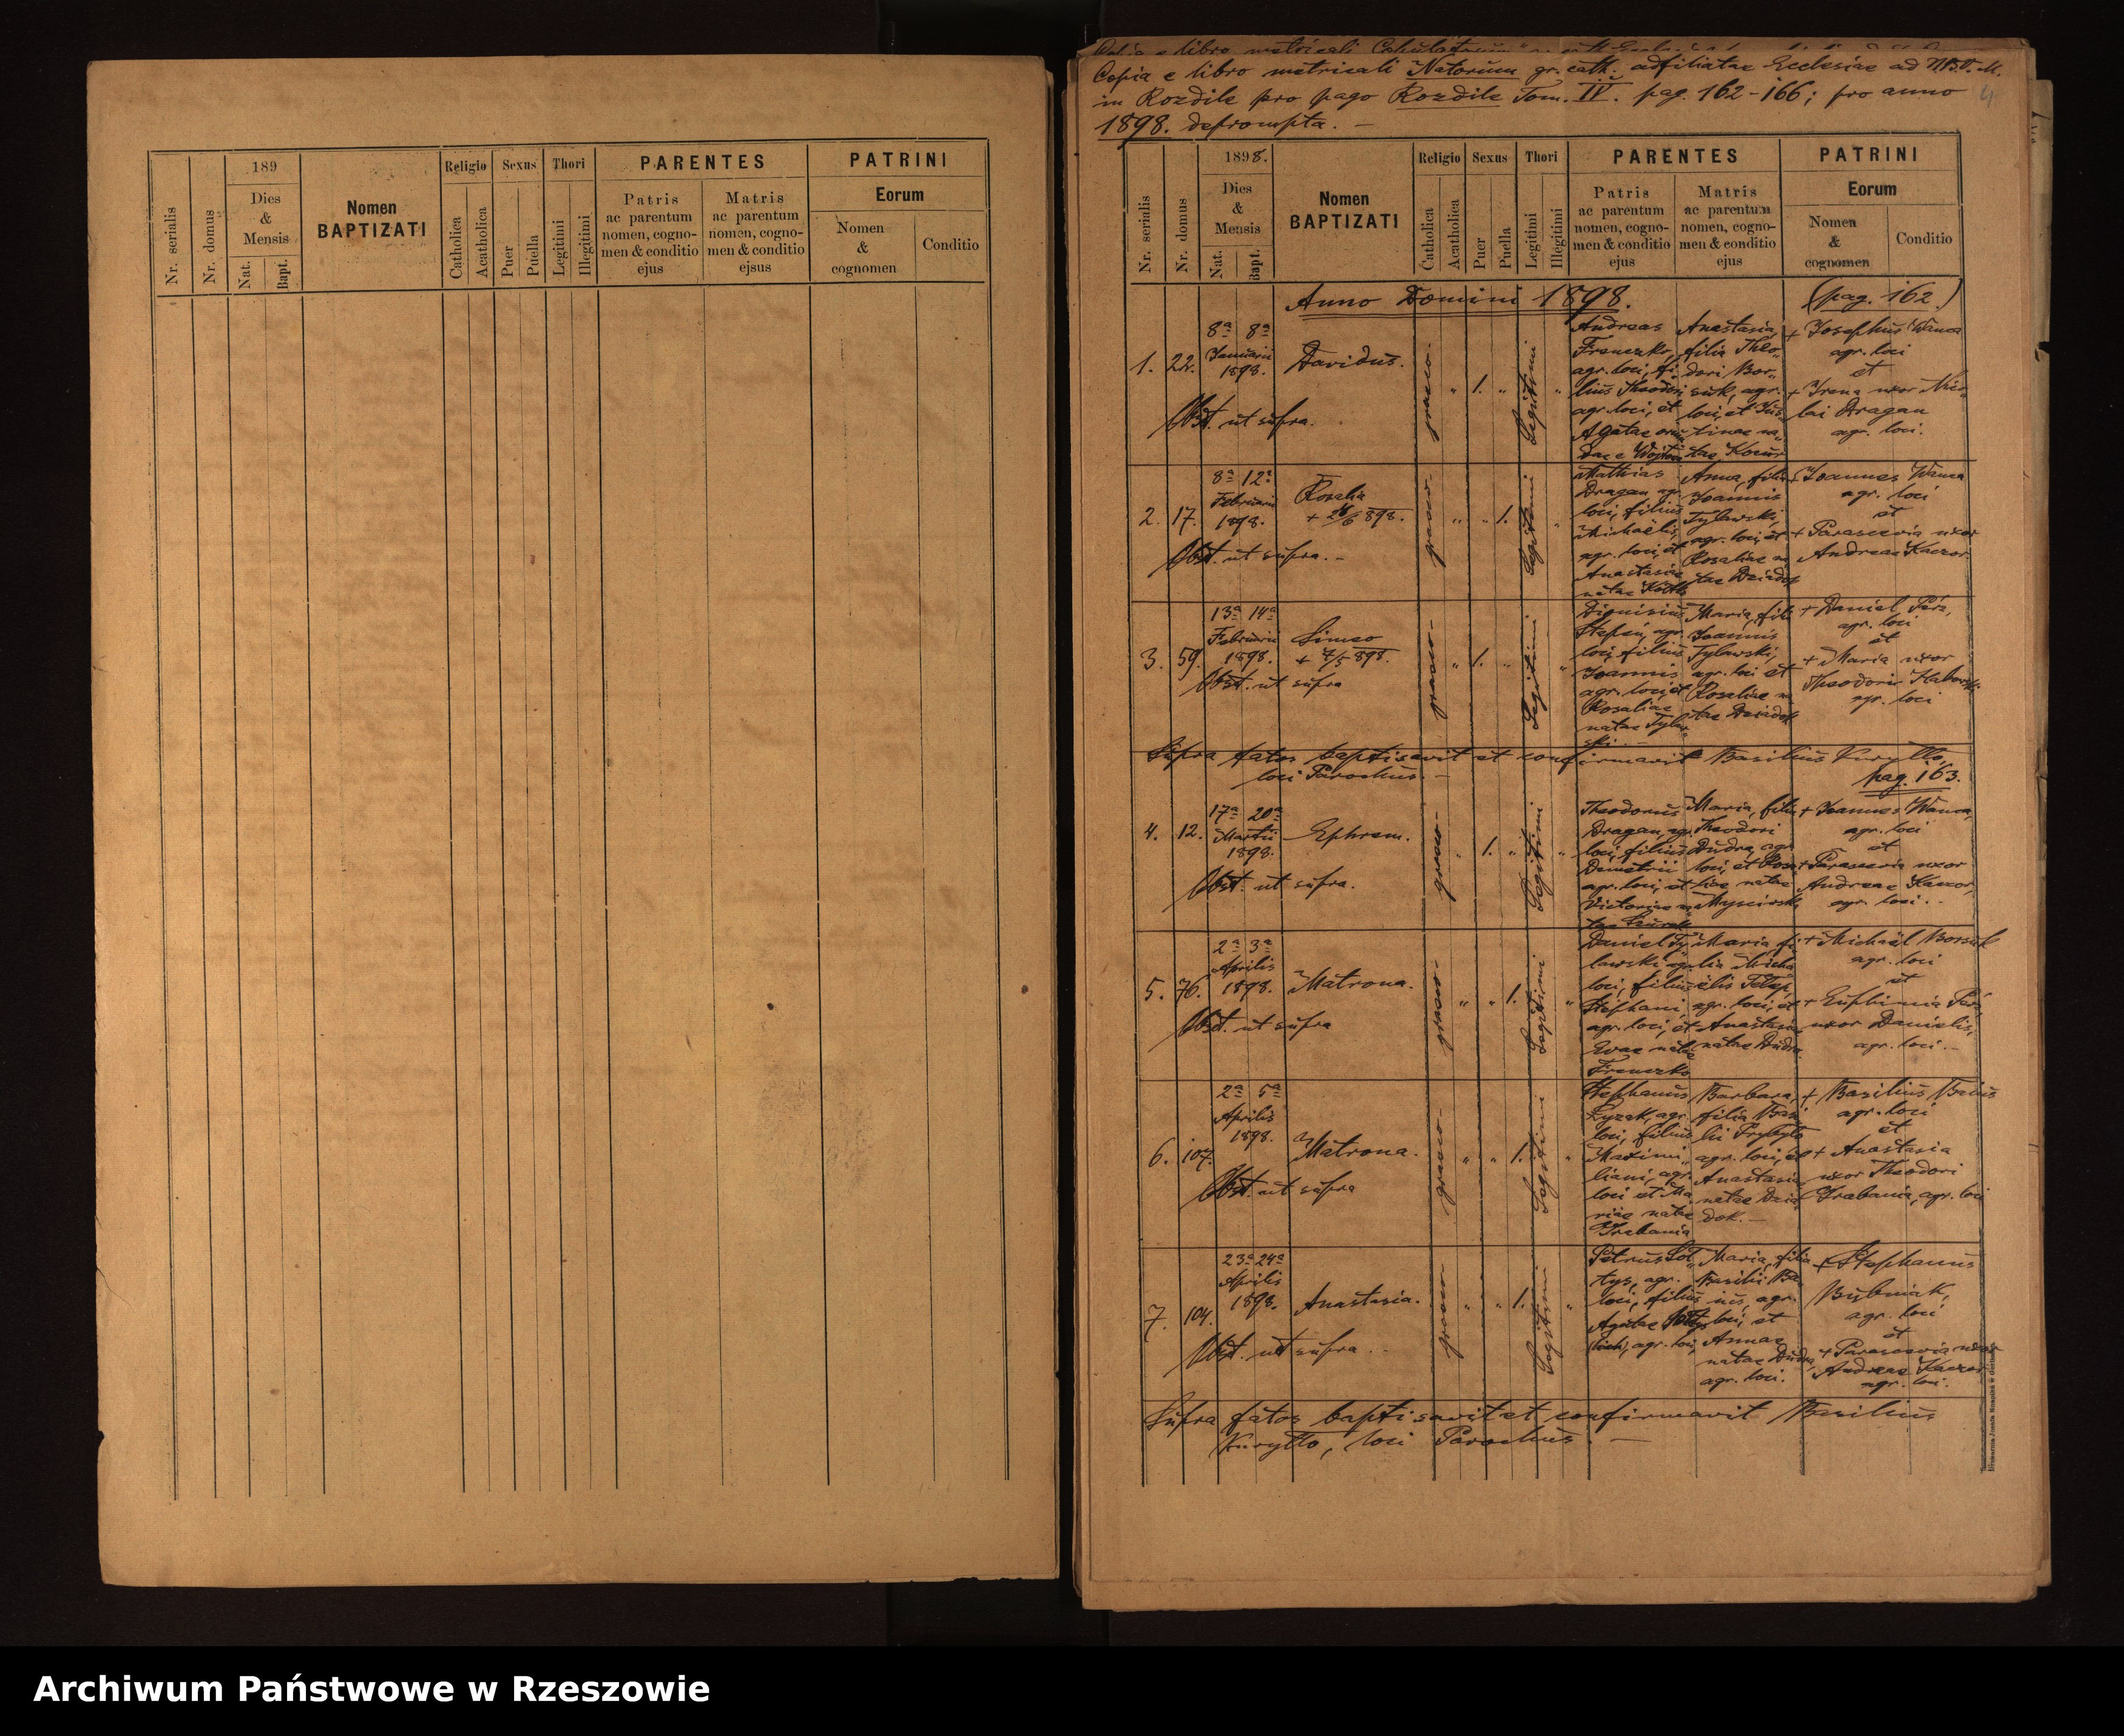 189
Religio
Sexus
Thori
PARENTES
PATRINI
Nr. serialis
Nr. domus
Dies
&
Mensis
Nat.
Bapt.
Nomen
BAPTIZATI
Catholica
Acatholica
Puer
Puella
Legitimi
Illegitimi
Patris
ac parentum
nomen, cogno-
men & conditio
ejus
Matris
ac parentum
nomen, cogno-
men & conditio
ejsus
Eorum
Nomen
&
cognomen
Conditio
Copia e libro metricali Natorum gr. cath. adfiliatae Ecclesiae ad N.B.V.M.
in Rozdile pro pago Rozdile Tom. IV. pag. 162-166; pro anno
1898. deprompta. —
4
1898.
Religio
Sexus
Thori
PARENTES
PATRINI
Nr. serialis
Nr. domus
Dies
&
Mensis
Nat.
Bapt.
Nomen
BAPTIZATI
Catholica
Acatholica
Puer
Puella
Legitimi
Illegitimi
Patris
ac parentum
nomen, cogno-
men & conditio
ejus
Matris
ac parentum
nomen, cogno-
men & conditio
ejus
Eorum
Nomen
&
cognomen
Conditio
Anno Domini 1898.
(pag. 162.)
1.
22.
8ª 8ª
Januarii
1898.
Davidus.
Obst. ut supra.
graeco-
1.
Legitimi
Andreas
Frenczko,
agr. loci, fi-
lius Theodori
agr. loci, et
Agatae
Anastasia,
filia Theo-
dori Bor-
suk, agr.
loci, et Jus-
tinae na-
tae
+ Josephus Wanca
agr. loci
et
+ Irena uxor Nico-
lai Dragan
agr. loci.
2.
17.
8ª 12ª
Februarii
1898.
Rosalia
Obst. ut supra. -
graeco-
1.
Legitimi
Mathias
Dragan agr.
loci, filius
Michaëlis
agr. loci, et
Anastasiae
natae
Anna, filia
Joannis
Tylawski,
agr. loci, et
Rosaliae na-
tae Dziadok
+ Joannes Wanca
agr. loci
et
+ Parascevia uxor
Andreae Kaczor
3.
59.
13ª 14ª
Februarii
1898.
Simeo
+ 7/5 898.
Obst. ut supra
graeco-
1.
Legitimi
Dionisius
agr.
loci, filius
Joannis
agr. loci, et
Rosaliae
natae Tylaw-
ski. —
Maria, filia
Joannis
Tylawski,
agr. loci et
Rosaliae na-
tae Dziadok
+ Daniel
agr. loci
et
+ Maria uxor
Theodori
agr. loci
Supra fatos baptisavit et confirmavit Basilius Kuryłło,
loci Parochus. —
pag. 163.
4.
12.
17ª 20ª
Martii
1898.
Ephrem.
Obst. ut supra.
graeco-
1.
Legitimi
Theodorus
Dragan, agr.
loci, filius
Demetrii
agr. loci, et
Victoriae na-
Maria, filia
Theodori
Dudra, agr.
loci, et Rosa-
liae natae
+ Joannes Wanca,
agr. loci
et
+ Parascevia uxor
Andreae Kaczor,
agr. loci. -
5.
76.
2ª 3ª
Aprilis
1898.
Matrona.
Obst. ut supra
graeco-
1.
Legitimi
Daniel Ty-
lawski agr.
loci, filius
Stephani,
agr. loci, et
Evae natae
Frenczko
Maria, fi-
lia Micha-
ëlis
agr. loci, et
Anastasiae
natae Dudra
+ Michaël Borsuk
agr. loci
et
+ Euphimia
uxor Danielis,
agr. loci. —
6.
107.
2ª 5ª
Aprilis
1898.
Matrona.
Obst. ut supra
graeco-
1.
Legitimi
Stephanus
agr.
loci, filius
Maximi-
liani, agr.
loci et Ma-
riae natae
Hrabania
Barbara,
filia Basi-
lii
agr. loci, et
Anastasiae
natae Dzia-
dok. —
+ Basilius
agr. loci
et
+ Anastasia
uxor Theodori
Hrabania, agr. loci
7.
104.
23ª 24ª
Aprilis
1898.
Anastasia.
Obst. ut supra. -
graeco-
1.
Legitimi
Petrus
agr.
loci, filius
Agatae
agr. loci,
Maria, filia
Basilii
agr.
loci, et
Annae
natae Dudra,
agr. loci.
+ Stephanus
Bubniak,
agr. loci
et
+ Parascevia uxor
Andreae Kaczor
agr. loci.
Supra fatos baptisavit et confirmavit Basilius
Kuryłło, loci Parochus. —
Archiwum Państwowe w Rzeszowie